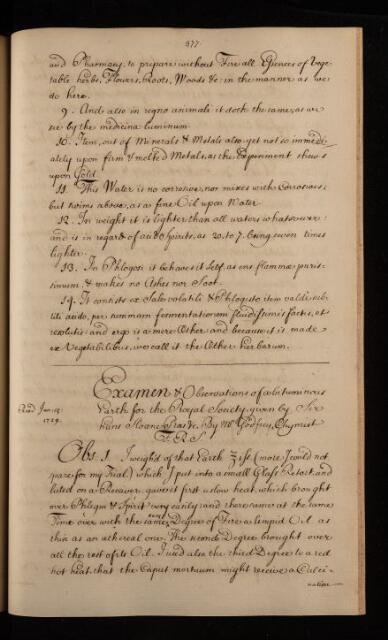 377.
and Pharmacy, to prepare without Fire all Essences of Vege-
table herbs, Flowers, Roots, Woods &c in the manner as we
do here.
9. And also in regno animali it doth the same, as we
see by the medicina hominum.
10. Item, out of Minerals & Metals also yet not so immedi-
ately upon firm & melted Metals, as the Experiment shows
upon Gold.
11. This Water is no corrosive, nor mixes with Corrosives,
but swims above, as a fine Oil upon Water.
12. In weight it is lighter than all waters whatsoever:
and is in regard of and Spirits, as 20. to 7. being seven times
lighter.
13. In Phlogosi it behaves it self, as ens flammæ puris-
simum & makes no Ashes nor Soot.
14. It consists ex Sale volatili & Phlogisto item valde sub-
tili acido, per summam fermentationem fluidissimis factis, et
resolutis: and ergo is a mere Æther: and because it is made
ex Vegetabilibus, we call it the Æther herbarum.
Examen & Observations of a bituminous
Read Jan. 15.
1729.
Earth for the Royal Society, given by Sir
Hans Sloane, Pras &c. By Mr Godfrey, Chymist
F.R.S.
Obs. 1. I weigh'd of that Earth ℥ iß (more I could not
spare for my Trial) which I put into a small Glass Retort, and
luted on a Receiver, gave it first a slow heat, which brought
over Phlegm & Spirit very easily: and there came at the same
Time over with the same Degree of Fire a limpid Oil as
thin as an æthereal one. The second Degree brought over
all the rest of its Oil. I used also the third Degree to a red
hot heat, that the Caput mortuum might receive a Calci-
nation